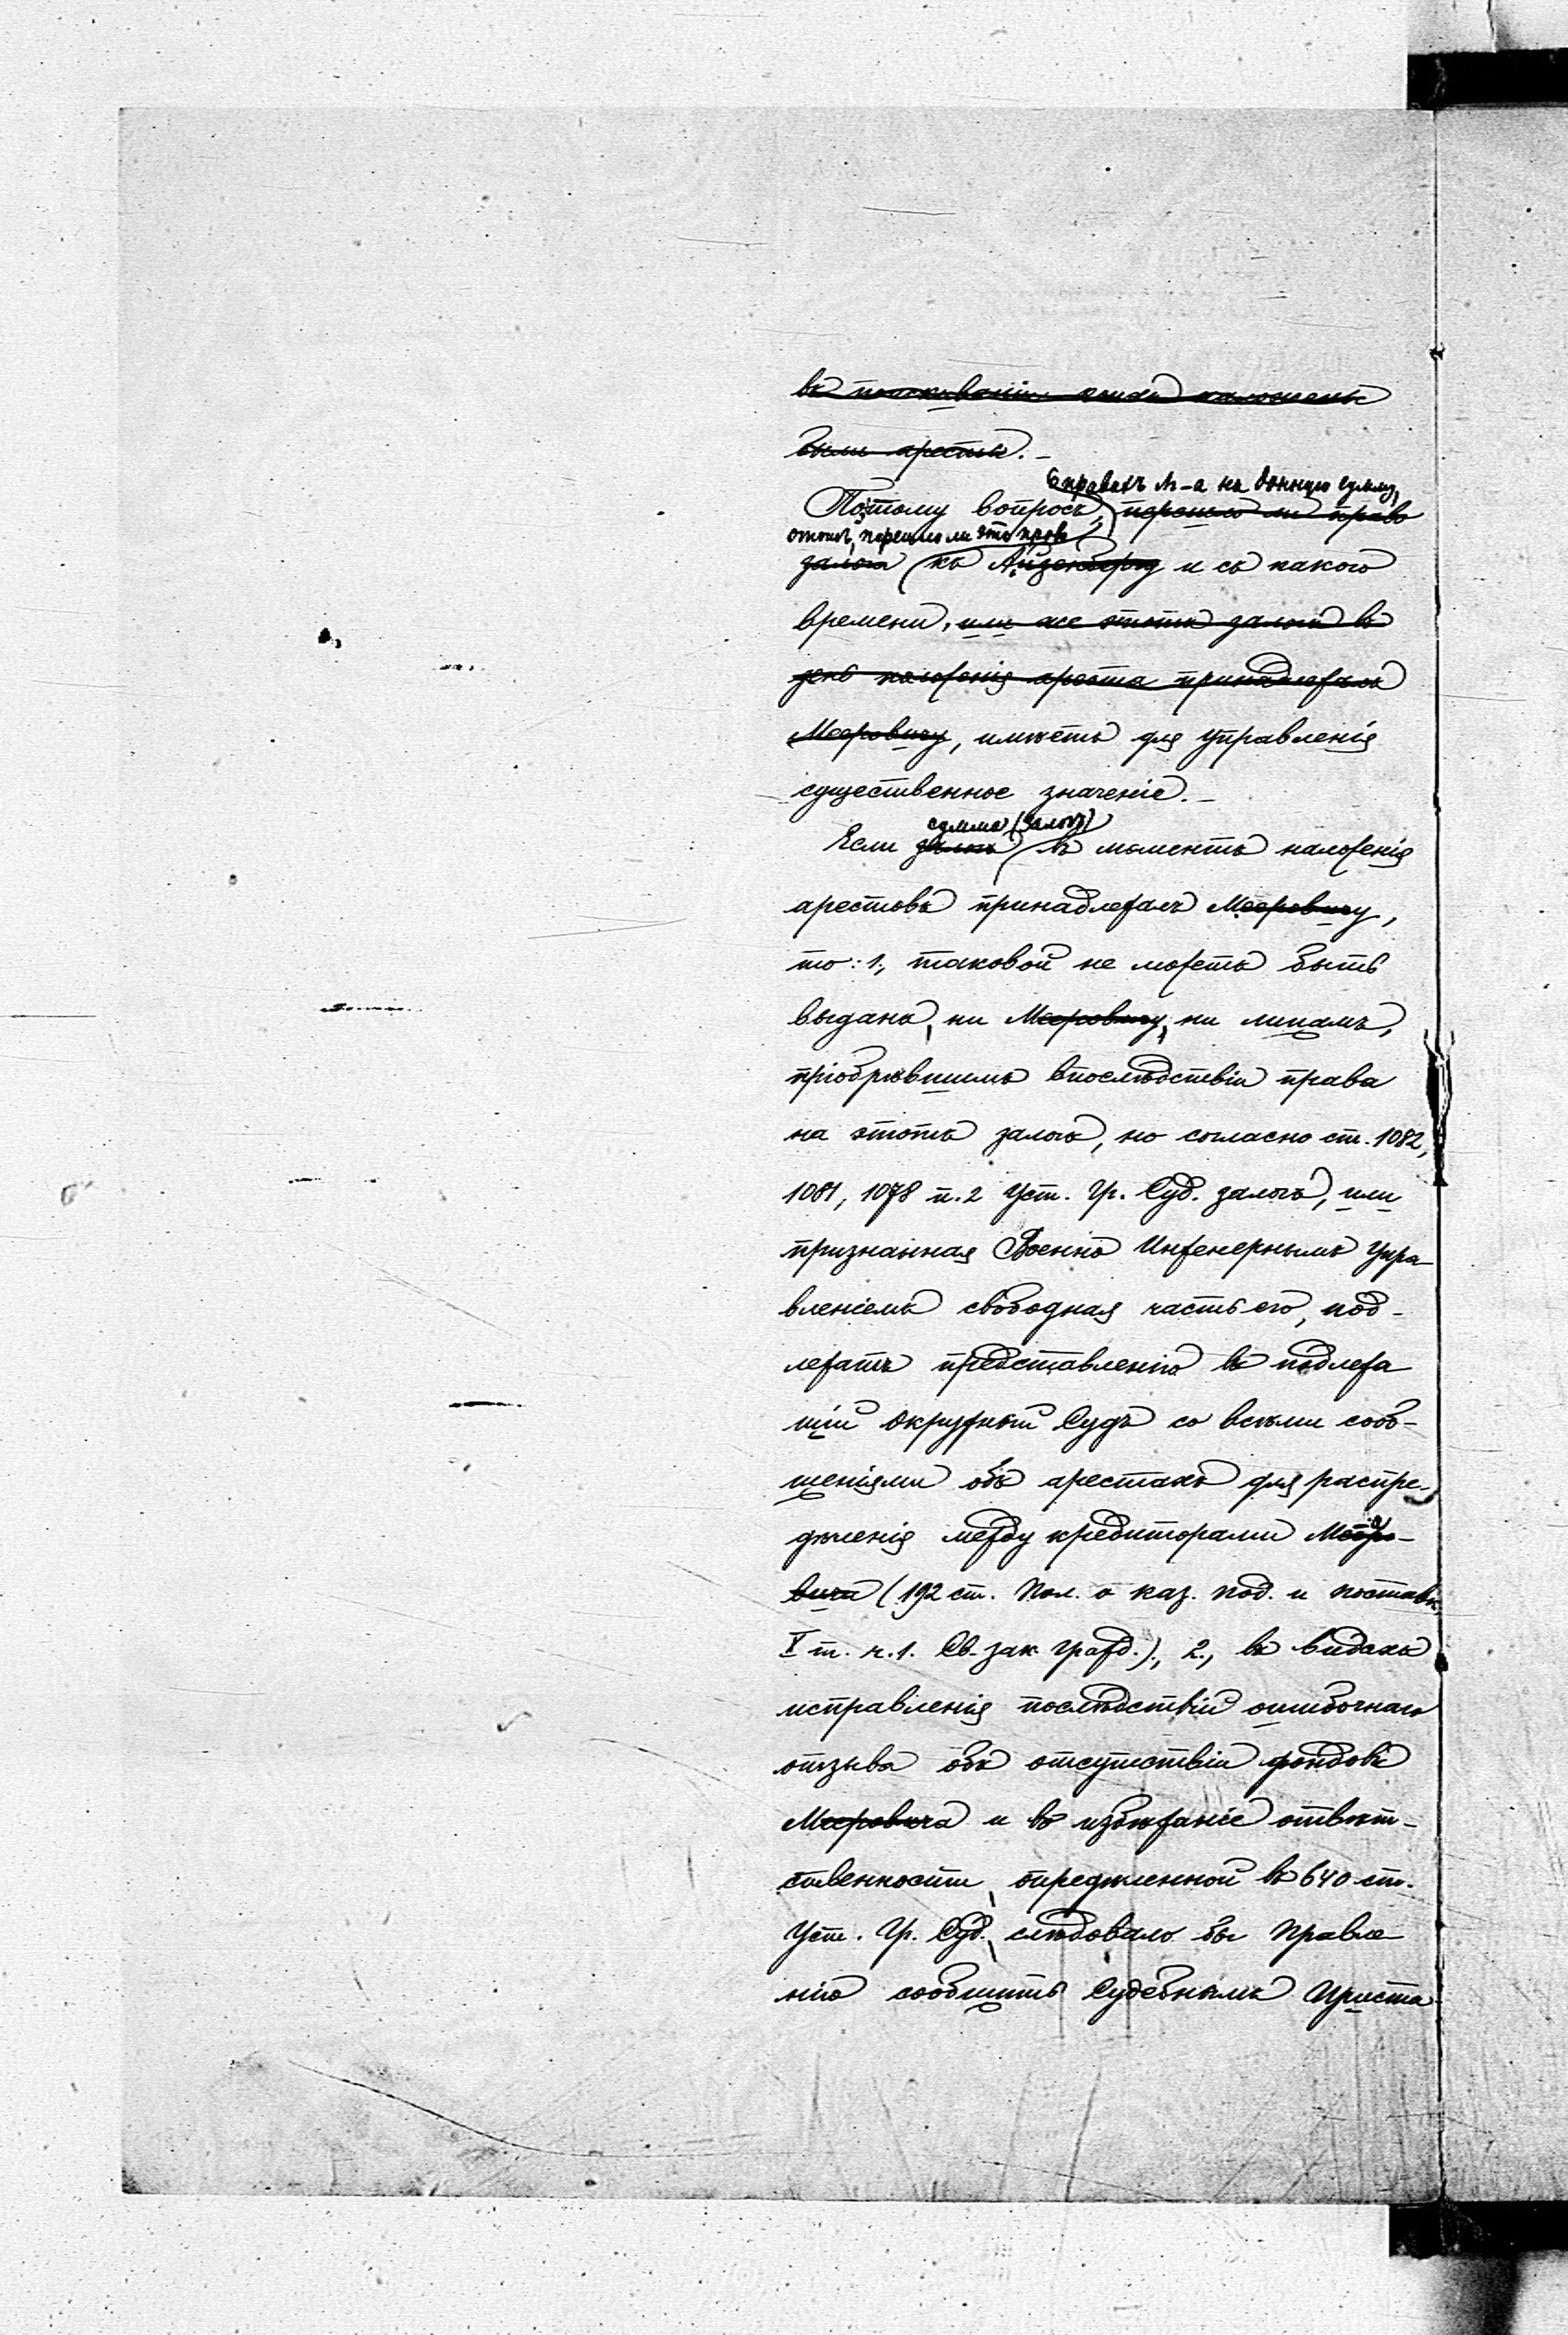 были аресты. –
о правахъ М-а на данную сумму,
Поэтому вопросъ, перешло ли право
о томъ, перешло ли это право
залога къ Айзенбергу и съ какого
времени, или же этотъ залогъ въ
день наложенія ареста принадлежалъ
Мееровичу, имѣетъ для управленія
существенное значеніе. –
сумма (залогъ)
Если залогъ въ моментъ наложенія
арестовъ принадлежалъ Мееровичу,
то: 1, таковой не можетъ быть
выданъ, ни Мееровичу, ни лицамъ,
пріобрѣвшимъ впослѣдствіи права
на этотъ залогъ, но согласно ст. 1082,
1081, 1078 п. 2 Уст. Гр. Суд. залогъ, или
признанная Военно Инженернымъ Упра-
вленіемъ свободная часть его, под-
лежатъ представленію въ подлежа
щій Окружный Судъ со всѣми сооб-
щеніями объ арестахъ для распре-
дѣленія между кредиторами Мееро-
вича (192 ст. Пол. о каз. под. и поставк.
X т. ч. 1. Св. зак. Гражд.)., 2., въ видахъ
исправленія послѣдствій ошибочнаго
отзыва объ отсутствіи фондовъ
Мееровича и во избѣжаніе отвѣт-
ственности, опредѣленной въ 640 ст.
Уст. Гр. Суд., слѣдовало бы Правле
нію сообщить Судебнымъ Приста-